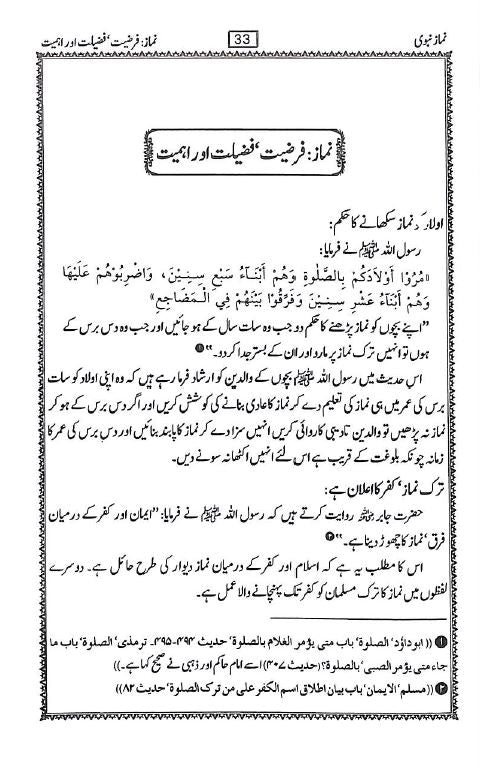 نماز نبوی
33
نماز: فرضیت‘ فضیلت اور اہمیت
نماز: فرضیت‘ فضیلت اور اہمیت
اولاد کو نماز سکھانے کا حکم:
رسول اللہ ﷺ نے فرمایا:
«مُرُوْا أَوْلَادَكُمْ بِالصَّلٰوةِ وَهُمْ أَبْنَآءُ سَبْعِ سِنِيْنَ، وَاضْرِبُوْهُمْ عَلَيْهَا
وَهُمْ أَبْنَآءُ عَشْرِ سِنِيْنَ وَفَرِّقُوْا بَيْنَهُمْ فِي الْمَضَاجِعِ»
’’اپنے بچوں کو نماز پڑھنے کا حکم دو جب وہ سات سال کے ہو جائیں اور جب وہ دس برس کے
ہوں تو انہیں ترک نماز پر مارو اور ان کے بستر جدا کر دو۔‘‘ ❶
اس حدیث میں رسول اللہ ﷺ بچوں کے والدین کو ارشاد فرما رہے ہیں کہ وہ اپنی اولاد کو سات
برس کی عمر میں ہی نماز کی تعلیم دے کر نماز کا عادی بنانے کی کوشش کریں اور اگر دس برس کے ہو کر
نماز نہ پڑھیں تو والدین تادیبی کاروائی کریں انہیں سزا دے کر نماز کا پابند بنائیں اور دس برس کی عمر کا
زمانہ چونکہ بلوغت کے قریب ہے اس لئے انہیں اکٹھا نہ سونے دیں۔
ترک نماز‘ کفر کا اعلان ہے:
حضرت جابر ؓ روایت کرتے ہیں کہ رسول اللہ ﷺ نے فرمایا: ’’ایمان اور کفر کے درمیان
فرق‘ نماز کا چھوڑ دینا ہے۔‘‘ ❷
اس کا مطلب یہ ہے کہ اسلام اور کفر کے درمیان نماز دیوار کی طرح حائل ہے۔ دوسرے
لفظوں میں نماز کا ترک مسلمان کو کفر تک پہنچانے والا عمل ہے۔
❶ ((ابوداؤد‘ الصلوة‘ باب متی یؤمر الغلام بالصلوة‘ حدیث ۴۹۴-۴۹۵۔ ترمذی‘ الصلوة‘ باب ما
جاء متی یؤمر الصبی بالصلوة؟ (حدیث ۴۰۷) اسے امام حاکم اور ذہبی نے صحیح کہا ہے۔))
❷ ((مسلم‘ الایمان‘ باب بیان اطلاق اسم الکفر علی من ترک الصلوة‘ حدیث ۸۲))